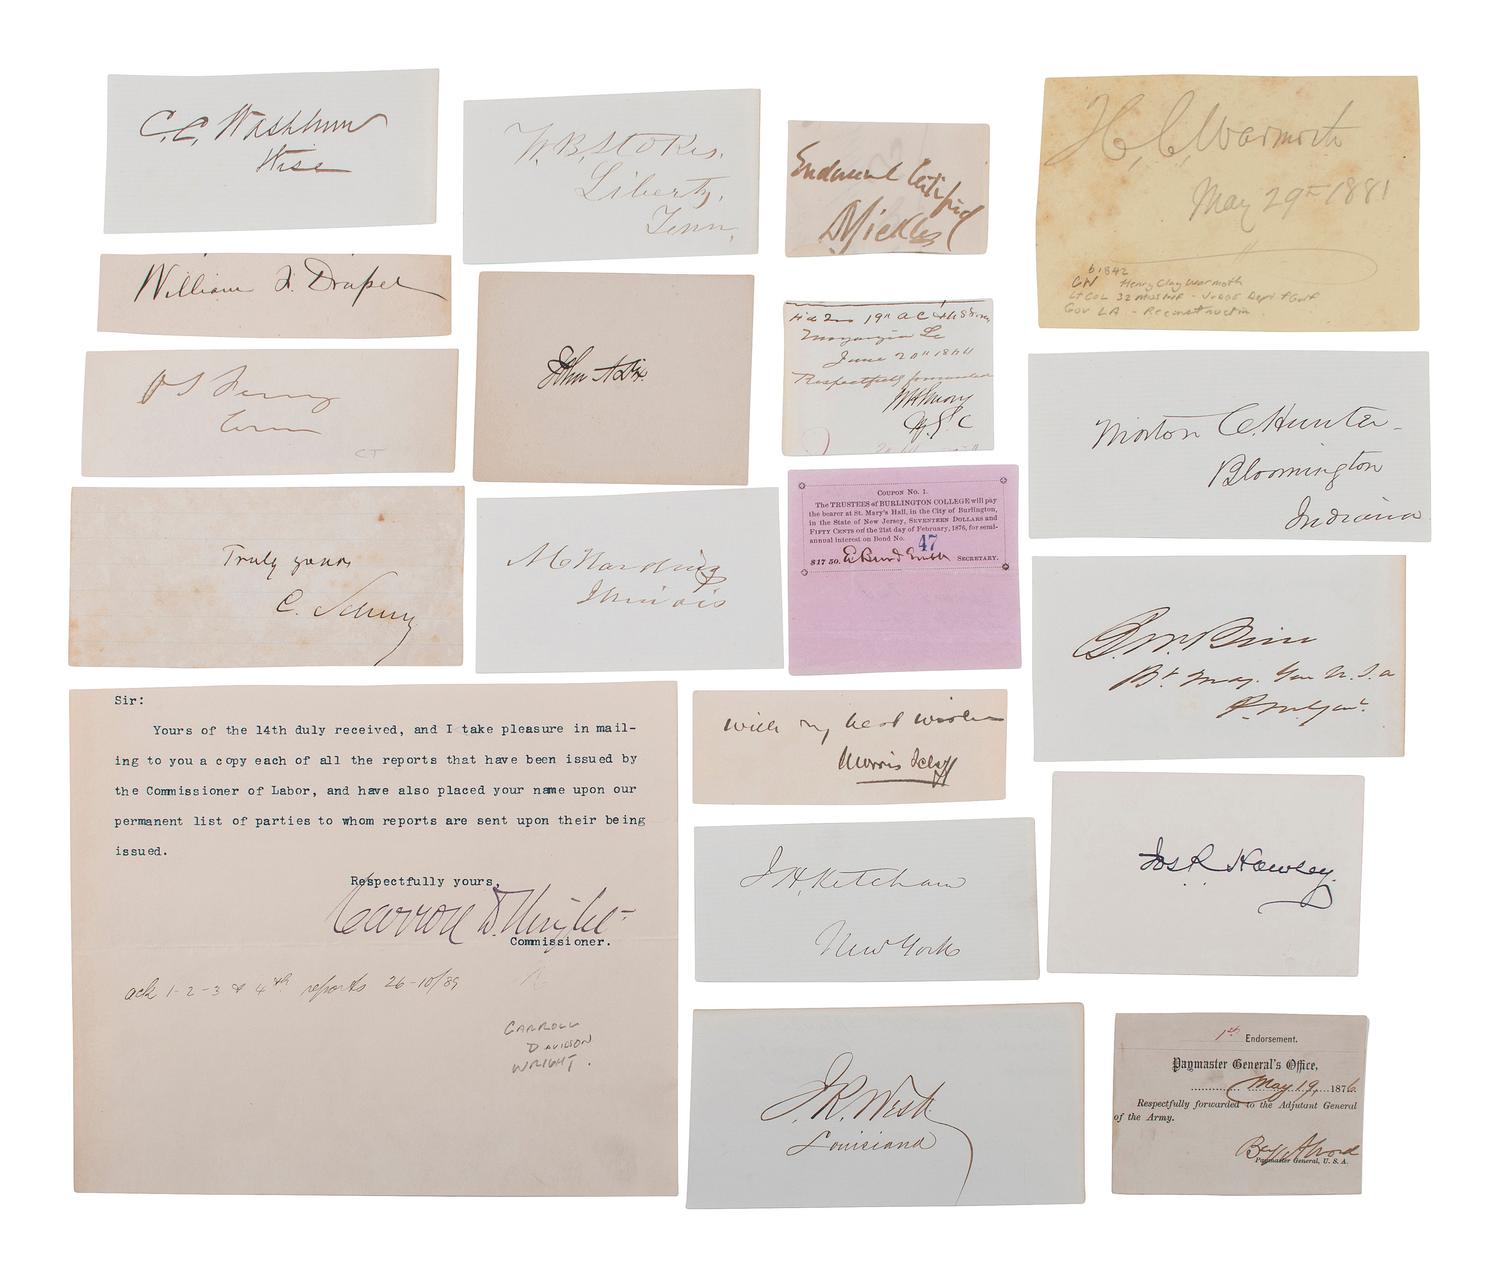 C.C. Washburn
Wisc
W.B. Stokes.
Liberty,
Tenn,
Endorsement Certified
D Sickles
H.C. Warmoth
May 29th 1881
b 1842
CW Henry Clay Warmoth
Lt Col 32 Mo Inf - Dept Gulf
Gov LA - Reconstruction
William F. Draper
John A Dix
Hd Qrs 19th A C
June 20th 1864
Respectfully forwarded
WH Emory
O S Ferry
Conn
CT
Morton C. Hunter
Bloomington
Indiana
Coupon No. 1.
The TRUSTEES of BURLINGTON COLLEGE will pay
the bearer at St. Mary's Hall, in the City of Burlington,
in the State of New Jersey, SEVENTEEN DOLLARS and
FIFTY CENTS on the 21st day of February, 1876, for semi-
annual interest on Bond No. 47
$17 50. E Burd Grubb SECRETARY.
Truly yours
C. Schurz
Harding
Illinois
B.W. Brice
Bt Maj. Gen U.S.A
Sir:
Yours of the 14th duly received, and I take pleasure in mail-
ing to you a copy each of all the reports that have been issued by
the Commissioner of Labor, and have also placed your name upon our
permanent list of parties to whom reports are sent upon their being
issued.
Respectfully yours,
Carroll D. Wright
Commissioner.
ack 1-2-3 & 4th reports 26-10/89
CARROLL
DAVIDSON
WRIGHT.
with my best wishes
Morris Schaff
J.H. Ketcham
New York
Jos R Hawley
J.R. West
Louisiana
1st Endorsement.
Paymaster General's Office,
May 19, 1876.
Respectfully forwarded to the Adjutant General
of the Army.
Benj Alvord
Paymaster General, U. S. A.